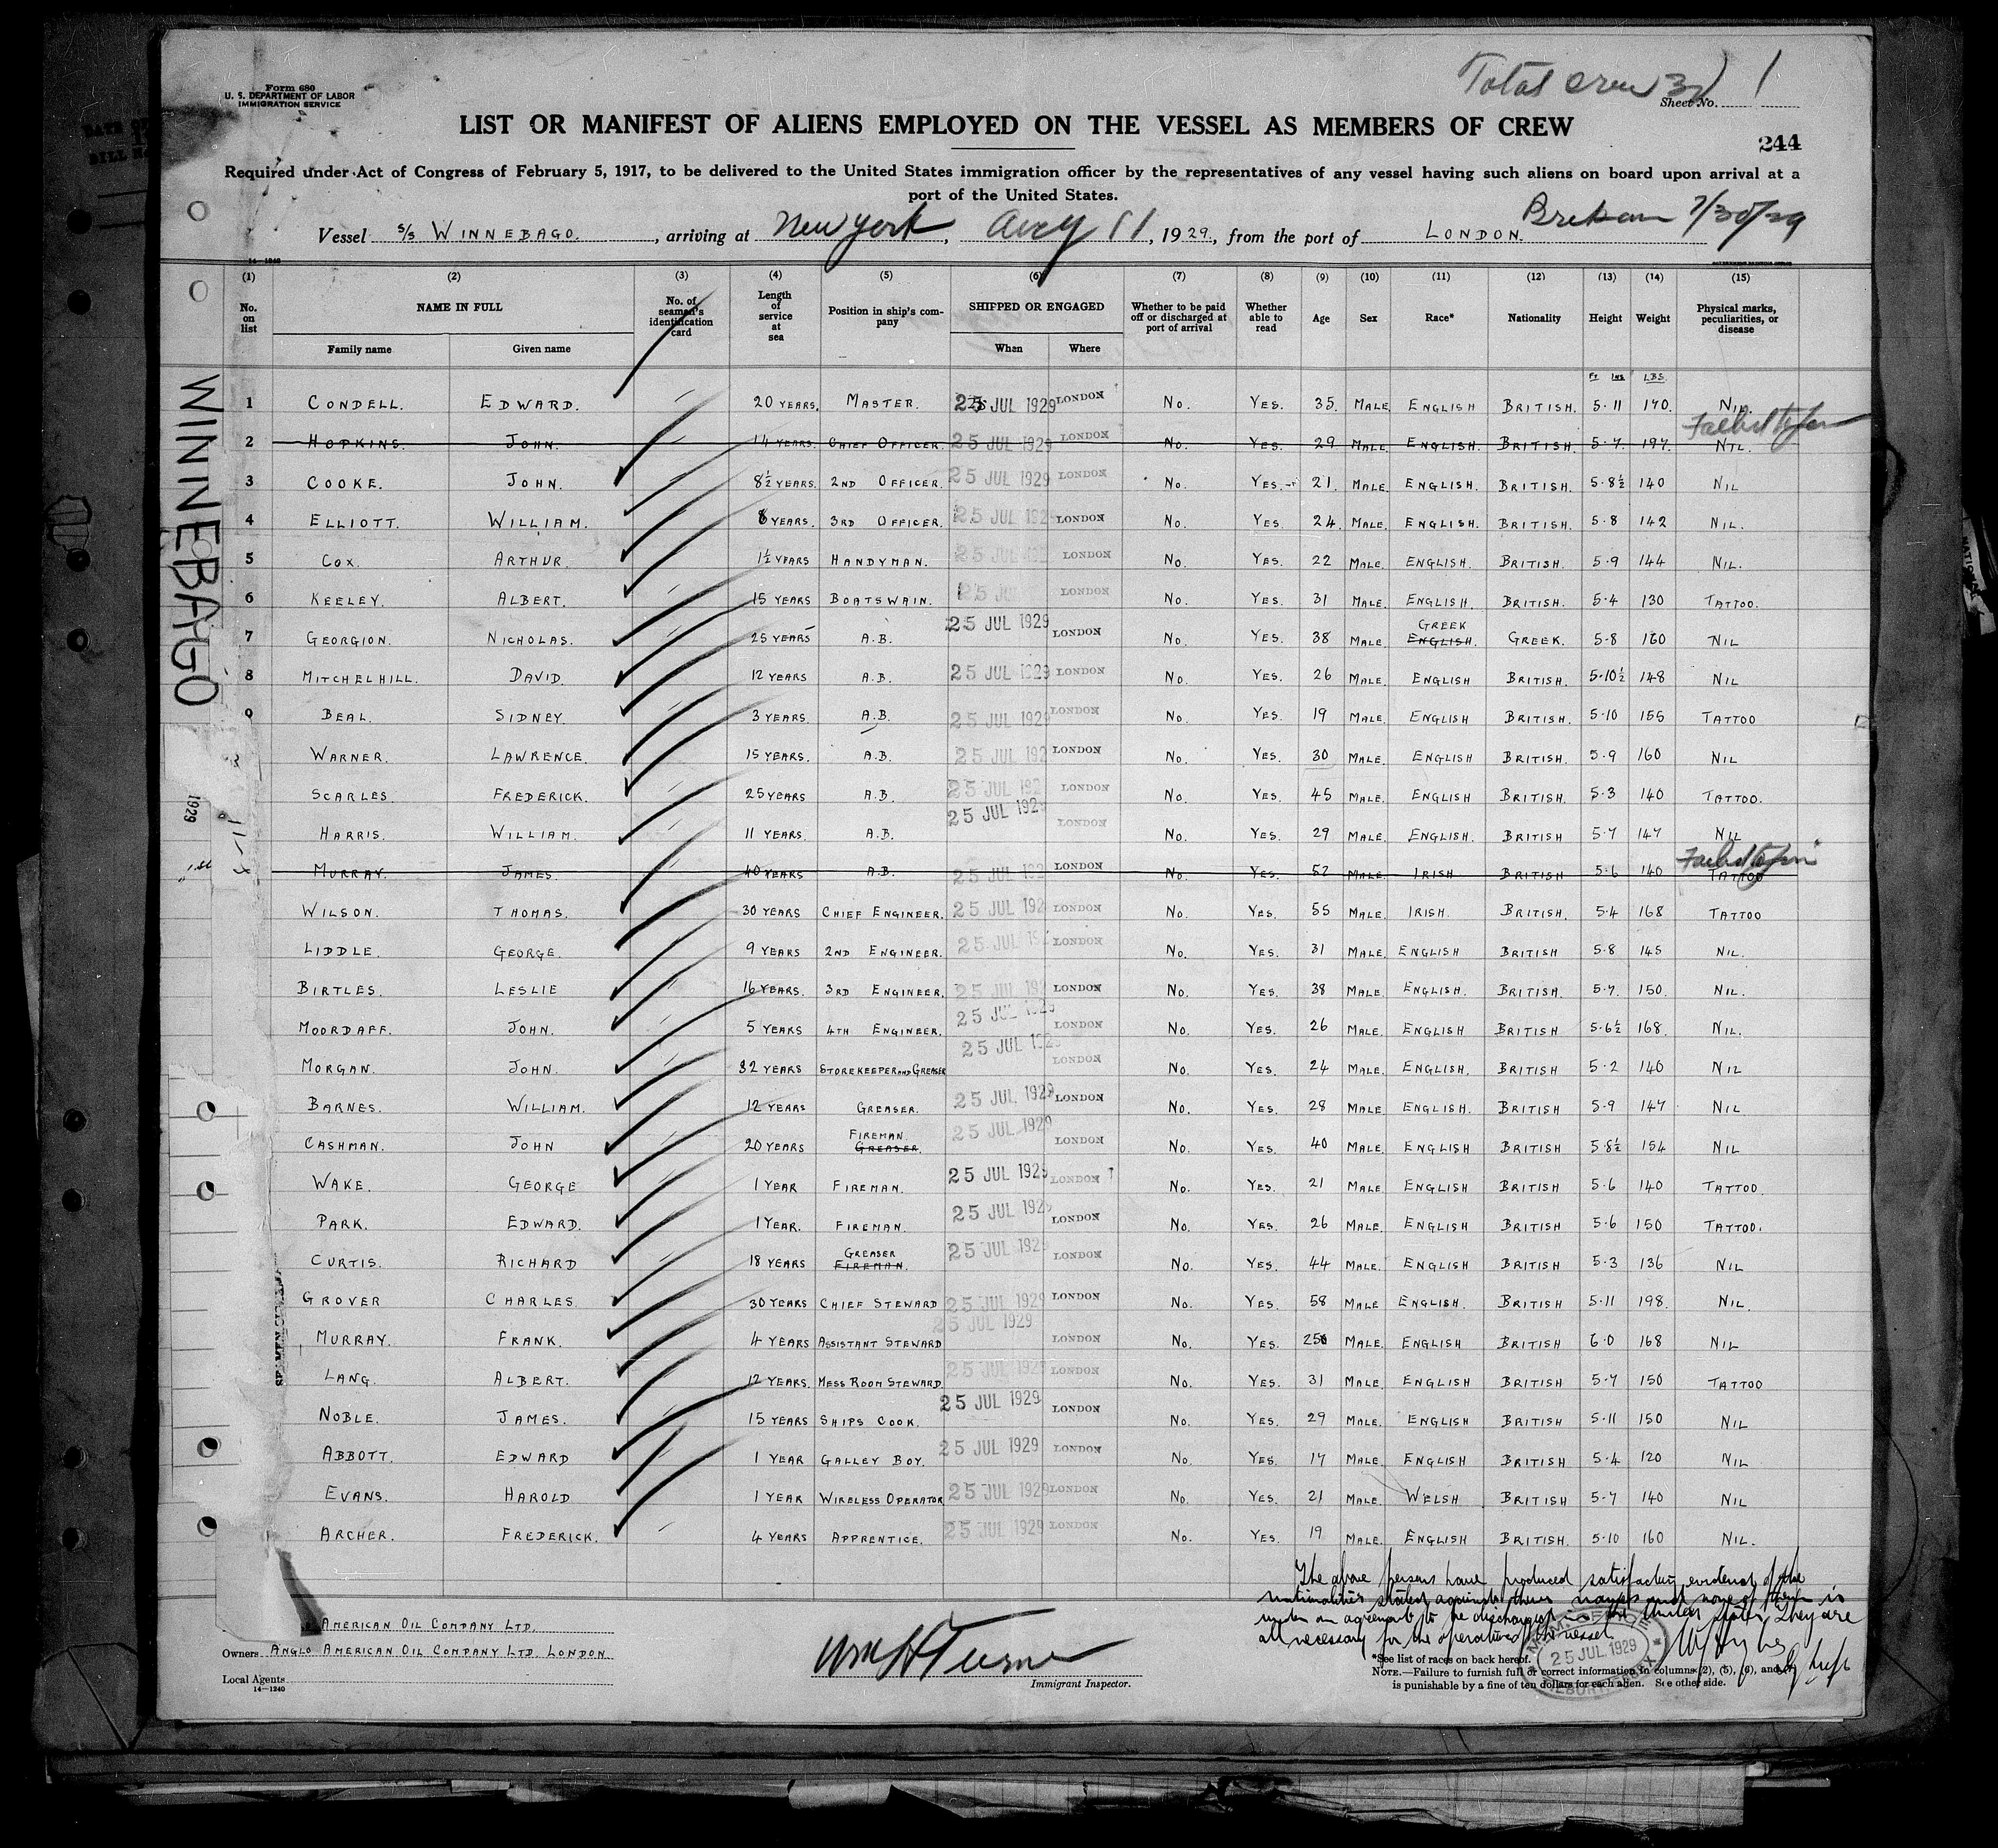 Total crew
Form 680
U. S. DEPARTMENT OF LABOR
IMMIGRATION SERVICE
Sheet No. 1
LIST OR MANIFEST OF ALIENS EMPLOYED ON THE VESSEL AS MEMBERS OF CREW
244
Required under Act of Congress of February 5, 1917, to be delivered to the United States immigration officer by the representatives of any vessel having such aliens on board upon arrival at a
port of the United States.
7/30/29
Vessel S/S WINNEBAGO., arriving at New York, Aug 11, 1929, from the port of LONDON.
14-1240
(1) (2) (3) (4) (5) (6) (7) (8) (9) (10) (11) (12) (13) (14) (15)
No. on list NAME IN FULL No. of seamen's identification card Length of service at sea Position in ship's company SHIPPED OR ENGAGED Whether to be paid off or discharged at port of arrival Whether able to read Age Sex Race* Nationality Height Weight Physical marks, peculiarities, or disease
Family name Given name When Where
FT INS LBS.
1 CONDELL. EDWARD. 20 YEARS. MASTER. 25 JUL 1929 LONDON No. YES. 35. MALE. ENGLISH BRITISH. 5·11 170. NIL.
Failed to join
2 HOPKINS. JOHN. 14 YEARS. CHIEF OFFICER. 25 JUL 1929 LONDON No. YES. 29 MALE. ENGLISH. BRITISH. 5·7. 197. NIL.
3 COOKE. JOHN. 8½ YEARS. 2ND OFFICER. 25 JUL 1929 LONDON No. YES. 21. MALE. ENGLISH. BRITISH. 5·8½ 140 NIL
4 ELLIOTT. WILLIAM. 8 YEARS. 3RD OFFICER. 25 JUL 1929 LONDON No. YES. 24. MALE. ENGLISH. BRITISH. 5·8 142 NIL.
5 COX. ARTHUR. 1½ YEARS HANDYMAN. 25 JUL LONDON No. YES. 22 MALE. ENGLISH. BRITISH. 5·9 144 NIL.
6 KEELEY. ALBERT. 15 YEARS BOATSWAIN. 25 JU LONDON No. YES. 31 MALE. ENGLISH. BRITISH. 5·4 130 TATTOO.
GREEK
7 GEORGION. NICHOLAS. 25 YEARS A.B. 25 JUL 1929 LONDON No. YES. 38 MALE. ENGLISH. GREEK. 5·8 160 NIL
8 MITCHELHILL. DAVID. 12 YEARS A.B. 25 JUL 1929 LONDON No. YES. 26 MALE. ENGLISH BRITISH. 5·10½ 148 NIL
9 BEAL. SIDNEY. 3 YEARS. A.B. 25 JUL 1929 LONDON No. YES. 19 MALE. ENGLISH BRITISH. 5·10 155 TATTOO
WARNER. LAWRENCE. 15 YEARS. A.B. 25 JUL 192 LONDON No. YES. 30 MALE. ENGLISH BRITISH. 5·9 160 NIL
SCARLES. FREDERICK. 25 YEARS A.B. 25 JUL 192 LONDON No. YES. 45 MALE. ENGLISH BRITISH. 5·3 140 TATTOO.
HARRIS. WILLIAM. 11 YEARS. A.B. 25 JUL 1929 LONDON No. YES. 29 MALE. ENGLISH. BRITISH 5·7 147 NIL
Failed to join
MURRAY. JAMES. 40 YEARS A.B. 25 JUL 192 LONDON No. YES. 52 MALE. IRISH BRITISH 5·6 140 TATTOO
WILSON. THOMAS. 30 YEARS CHIEF ENGINEER. 25 JUL 192 LONDON No. YES. 55 MALE. IRISH. BRITISH. 5·4 168 TATTOO
LIDDLE. GEORGE. 9 YEARS 2ND ENGINEER. 25 JUL 192 LONDON No. YES. 31 MALE. ENGLISH BRITISH 5·8 145 NIL.
BIRTLES. LESLIE 16 YEARS. 3RD ENGINEER. 25 JUL 192 LONDON No. YES. 38 MALE. ENGLISH. BRITISH. 5·7. 150. NIL.
MOORDAFF. JOHN. 5 YEARS 4TH ENGINEER. 25 JUL 1929 LONDON No. YES. 26 MALE. ENGLISH BRITISH 5·6½ 168. NIL.
MORGAN. JOHN. 32 YEARS STOREKEEPER AND GREASER 25 JUL 1929 LONDON No. YES. 24 MALE. ENGLISH. BRITISH 5·2 140 NIL
BARNES. WILLIAM. 12 YEARS GREASER. 25 JUL 1929 LONDON No. YES. 28 MALE. ENGLISH. BRITISH 5·9 147 NIL
FIREMAN.
CASHMAN. JOHN 20 YEARS GREASER. 25 JUL 1929 LONDON No. YES. 40 MALE. ENGLISH BRITISH 5·8½ 154 NIL
WAKE. GEORGE 1 YEAR FIREMAN. 25 JUL 1929 LONDON No. YES. 21 MALE ENGLISH BRITISH 5·6 140 TATTOO.
PARK. EDWARD. 1 YEAR. FIREMAN. 25 JUL 1929 LONDON No. YES. 26 MALE. ENGLISH BRITISH 5·6 150 TATTOO.
GREASER
CURTIS. RICHARD 18 YEARS FIREMAN. 25 JUL 1929 LONDON No. YES. 44 MALE. ENGLISH BRITISH 5·3 136 NIL
GROVER CHARLES. 30 YEARS CHIEF STEWARD 25 JUL 1929 LONDON No. YES. 58 MALE ENGLISH. BRITISH 5·11 198. NIL.
MURRAY. FRANK. 4 YEARS ASSISTANT STEWARD 25 JUL 1929 LONDON No. YES. 25 MALE. ENGLISH BRITISH 6·0 168 NIL
LANG. ALBERT. 12 YEARS. MESS ROOM STEWARD 25 JUL 1929 LONDON No. YES. 31 MALE. ENGLISH BRITISH 5·7 150 TATTOO
NOBLE. JAMES. 15 YEARS SHIPS COOK. 25 JUL 1929 LONDON No. YES. 29 MALE. ENGLISH BRITISH 5·11 150 NIL
ABBOTT. EDWARD 1 YEAR GALLEY BOY. 25 JUL 1929 LONDON No. YES. 17 MALE. ENGLISH BRITISH 5·4 120 NIL
EVANS. HAROLD 1 YEAR WIRELESS OPERATOR 25 JUL 1929 LONDON No. YES. 21 MALE. WELSH BRITISH 5·7 140 NIL
ARCHER. FREDERICK. 4 YEARS APPRENTICE. 25 JUL 1929 LONDON No. YES. 19 MALE. ENGLISH BRITISH. 5·10 160 NIL.
WINNEBAGO
1929
The above persons have produced satisfactory evidence of the
nationalities stated against their names and none of them is
under an agreement to be discharged in the United States. They are
all necessary for the operation of the vessel.
25 JUL 1929
AMERICAN OIL COMPANY LTD.
Owners ANGLO AMERICAN OIL COMPANY LTD. LONDON.
Local Agents
14-1240
Wm H Turner
Immigrant Inspector.
*See list of races on back hereof.
NOTE.—Failure to furnish full or correct information in columns (2), (5), (6), and
is punishable by a fine of ten dollars for each alien. See other side.